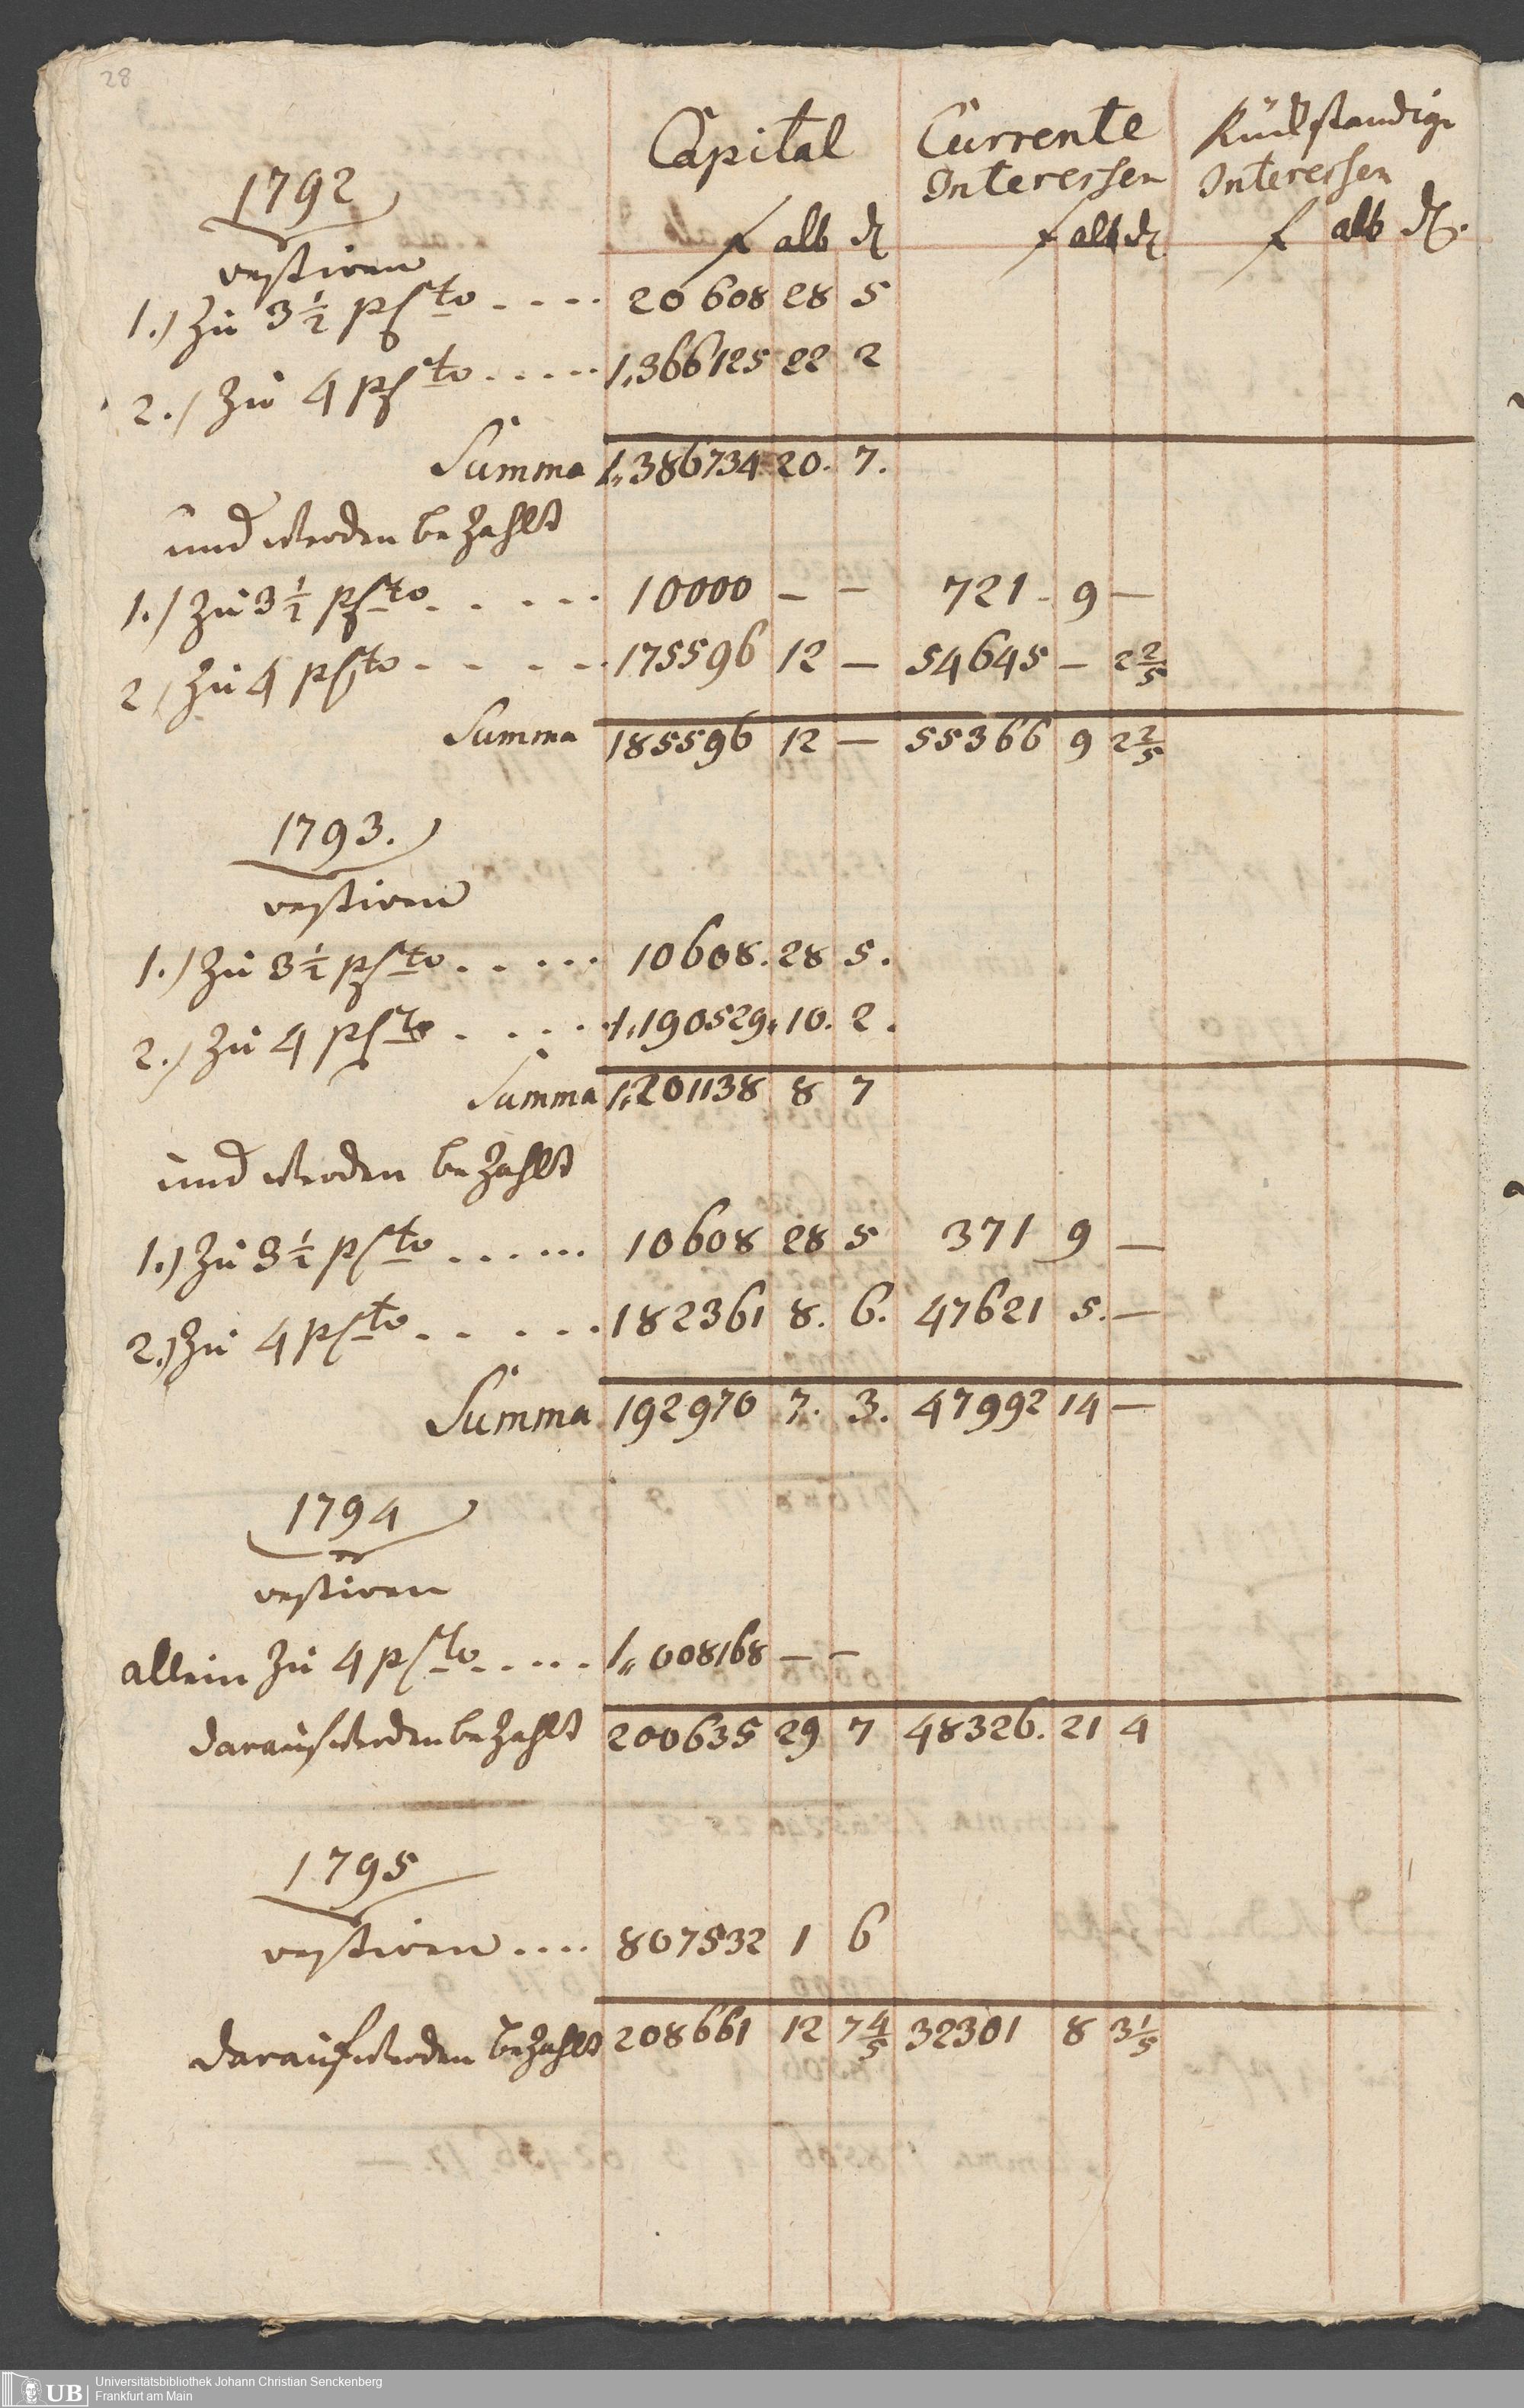 28
Capital
Currente Interessen
Rückständige Interessen
f alb d
f alb d
f alb d
1792
restiren
1.) Zu 3 1/2 pCto .... 20608 28 5
2.) Zu 4 pCto ..... 1,366125 22 2
Summa 1,386734. 20. 7.
und werden bezahlt
1.) Zu 3 1/2 pCto. .... 10000 — — 721. 9 —
2.) Zu 4 pCto .... 175596 12 — 54645 — 2 2/5
Summa 185596 12 — 55366 9 2 2/5
1793.
restiren
1.) Zu 3 1/2 pCto ..... 10608. 28 5.
2.) Zu 4 pCto ..... 1,190529, 10. 2.
Summa 1,201138 8 7
und werden bezahlt
1.) Zu 3 1/2 pCto ...... 10608 28 5 371 9 —
2.) Zu 4 pCto ..... 182361 8. 6. 47621 5. —
Summa 192970 7. 3. 47992 14 —
1794
restiren
allein Zu 4 pCto ..... 1,008168 — —
darauf werden bezahlt 200635 29 7 48326. 21 4
1795
restiren .... 807532 1 6
darauf werden bezahlt 208661 12 7 4/5 32301 8 3 1/5
UB
Universitätsbibliothek Johann Christian Senckenberg
Frankfurt am Main